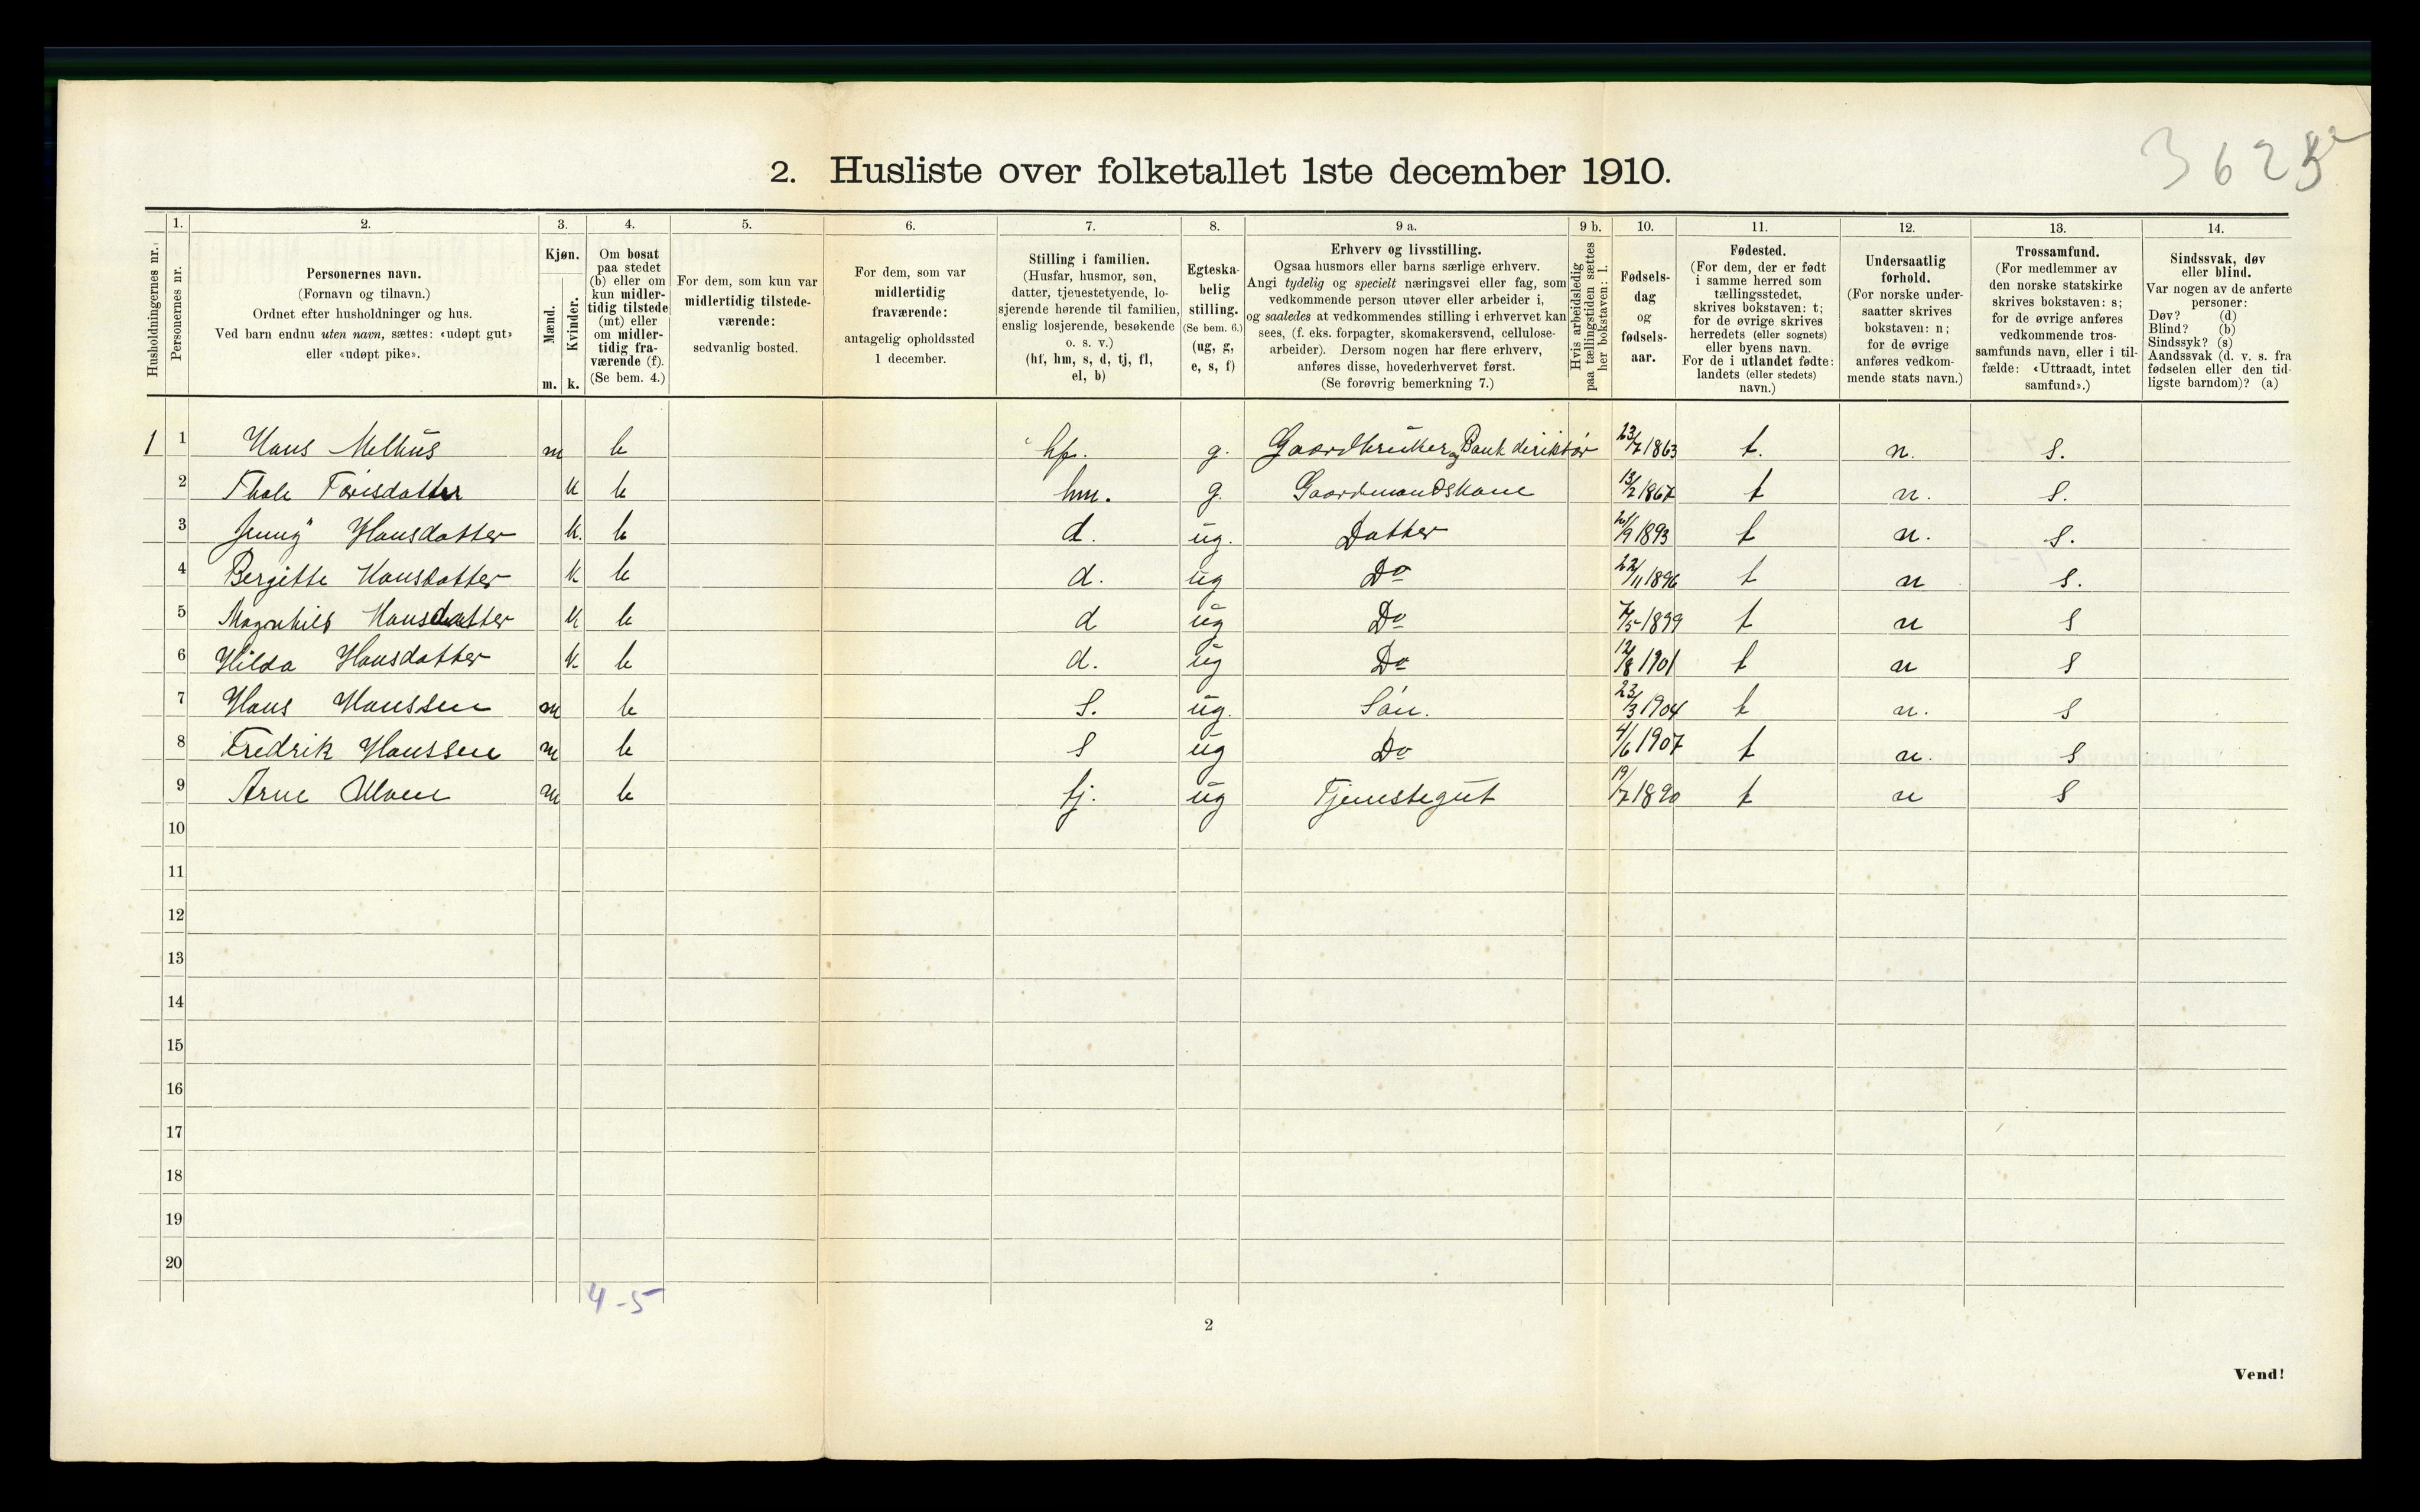 3 6 2 5
2. Husliste over folketallet 1ste december 1910.
Husholdningernes nr.
1. Personernes nr.
2. Personernes navn.
(Fornavn og tilnavn.)
Ordnet efter husholdninger og hus.
Ved barn endnu uten navn, sættes: «udøpt gut»
eller «udøpt pike».
3. Kjøn.
Mænd. m.
Kvinder. k.
4. Om bosat
paa stedet
(b) eller om
kun midler-
tidig tilstede
(mt) eller
om midler-
tidig fra-
værende (f).
(Se bem. 4.)
5. For dem, som kun var
midlertidig tilstede-
værende:
sedvanlig bosted.
6. For dem, som var
midlertidig
fraværende:
antagelig opholdssted
1 december.
7. Stilling i familien.
(Husfar, husmor, søn,
datter, tjenestetyende, lo-
sjerende hørende til familien,
enslig losjerende, besøkende
o. s. v.)
(hf, hm, s, d, tj, fl,
el, b)
8. Egteska-
belig
stilling.
(Se bem. 6.)
(ug, g,
e, s, f)
9 a. Erhverv og livsstilling.
Ogsaa husmors eller barns særlige erhverv.
Angi tydelig og specielt næringsvei eller fag, som
vedkommende person utøver eller arbeider i,
og saaledes at vedkommendes stilling i erhvervet kan
sees, (f. eks. forpagter, skomakersvend, cellulose-
arbeider). Dersom nogen har flere erhverv,
anføres disse, hovederhvervet først.
(Se forøvrig bemerkning 7.)
9 b. Hvis arbeidsledig
paa tællingstiden sættes
her bokstaven: l.
10. Fødsels-
dag
og
fødsels-
aar.
11. Fødested.
(For dem, der er født
i samme herred som
tællingsstedet,
skrives bokstaven: t;
for de øvrige skrives
herredets (eller sognets)
eller byens navn.
For de i utlandet fødte:
landets (eller stedets)
navn.)
12. Undersaatlig
forhold.
(For norske under-
saatter skrives
bokstaven: n;
for de øvrige
anføres vedkom-
mende stats navn.)
13. Trossamfund.
(For medlemmer av
den norske statskirke
skrives bokstaven: s;
for de øvrige anføres
vedkommende tros-
samfunds navn, eller i til-
fælde: «Uttraadt, intet
samfund».)
14. Sindssvak, døv
eller blind.
Var nogen av de anførte
personer:
Døv? (d)
Blind? (b)
Sindssyk? (s)
Aandssvak (d. v. s. fra
fødselen eller den tid-
ligste barndom)? (a)
1 1 Hans Melhus m b hf. g. Gaardbruker og Bank direktør 23/7 1863 t. n. s.
2 Thale Tørrisdatter k b hm. g. Gaardmandskone 13/2 1867 t n. s.
3 Jenny Hansdatter k. b d. ug. Datter /9 1893 t n. s.
4 Bergitte Hansdatter k b d. ug Do 22/11 1896 t n s.
5 Magnhild Hansdatter k b d ug Do 7/5 1899 t n s
6 Hilda Hansdatter k b d. ug Do 12/8 1901 t n s
7 Hans Hanssen m b s. ug. Søn. 23/3 1904 t n. s
8 Fredrik Hanssen m b s ug Do 4/6 1907 t n. s
9 Arne m b tj. ug Tjenstegut 19/7 1890 t n s
10
11
12
13
14
15
16
17
18
19
20
4-5
2
Vend!